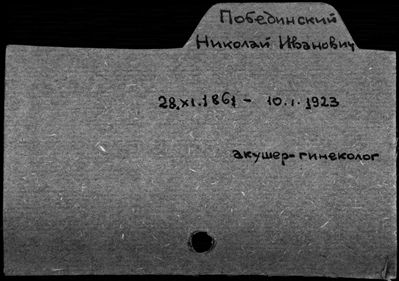 Побединский
Николай Иванович
28.XI.1861 - 10.I.1923
акушер-гинеколог